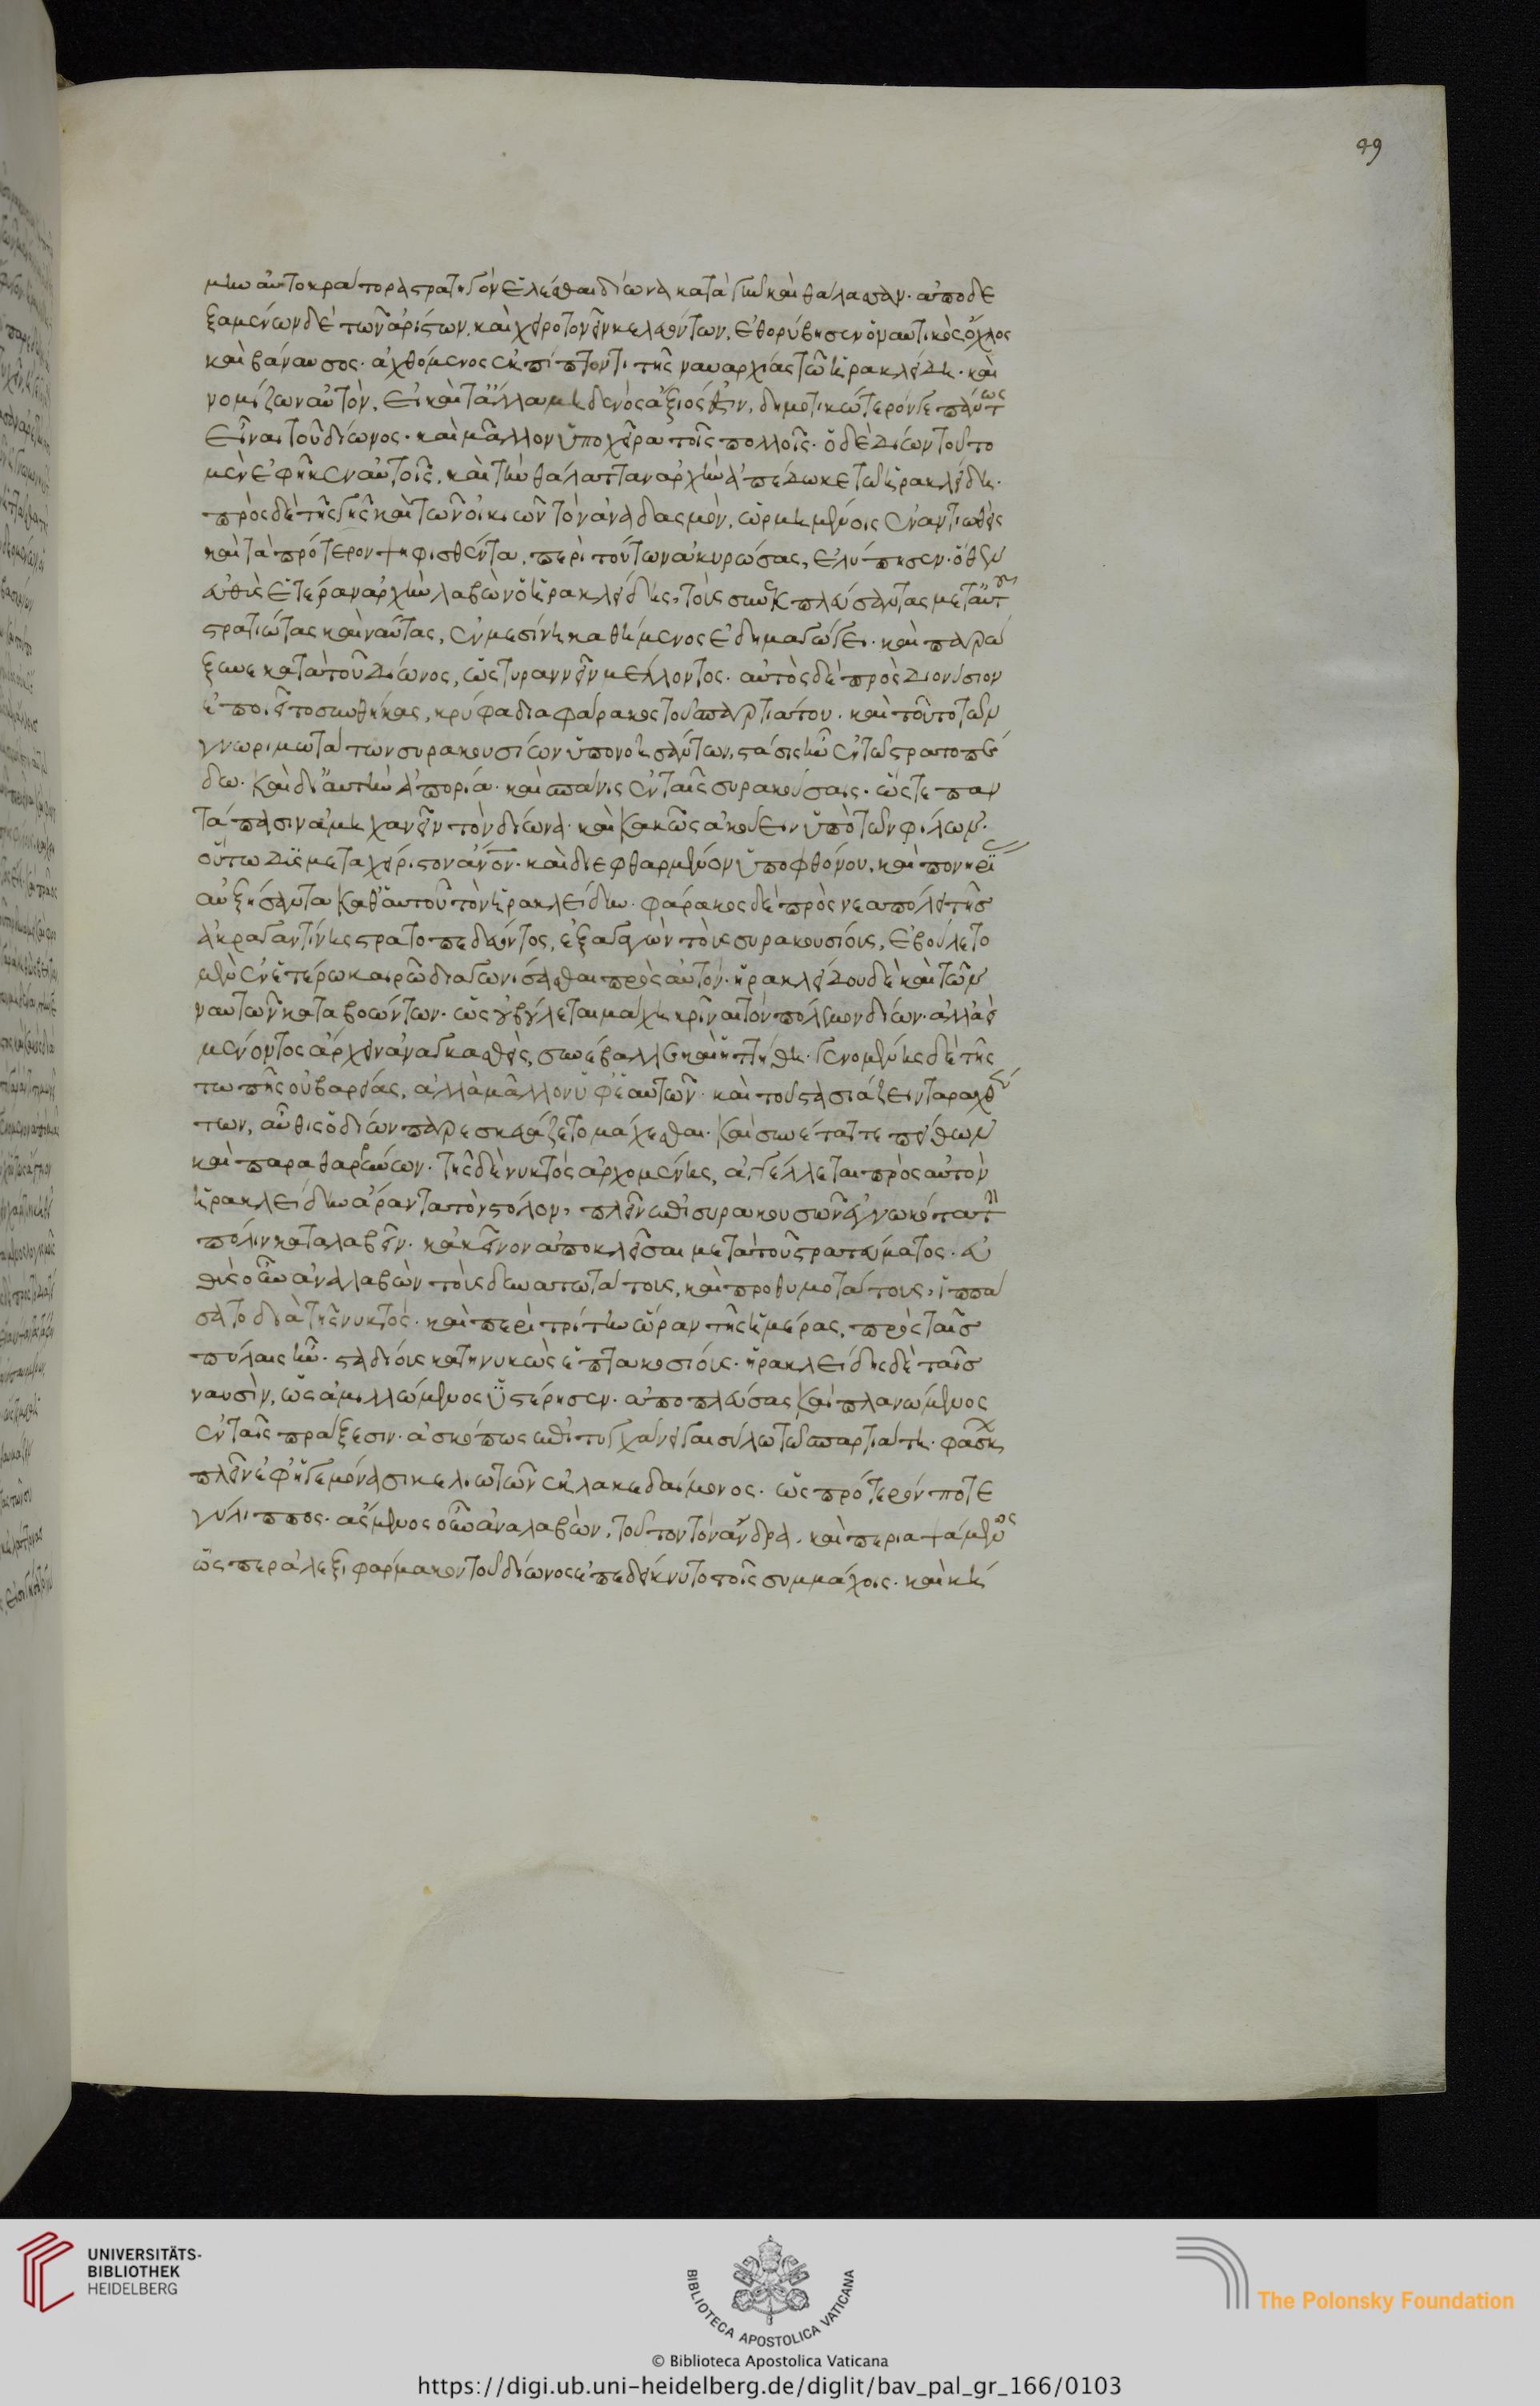 99
μην αὐτοκράτορα στρατηγὸν ἑλέσθαι δίωνα κατὰ γῆν καὶ θάλασσαν. ἀποδε
ξαμένων δὲ τῶν ἀρίστων, καὶ χειροτονεῖν κελευόντων, ἐθορύβησεν ὁ ναυτικὸς ὄχλος
καὶ βάναυσος. ἀχθόμενος ἐκπίπτοντι τῆς ναυαρχίας τῶ ἡρακλείδη. καὶ
νομίζων αὐτὸν, εἰ καὶ τἄλλα μηδενὸς ἄξιός ἐστιν, δημοτικώτερόν γε πάντως
εἶναι τοῦ δίωνος. καὶ μᾶλλον ὑποχείριον τοῖς πολλοῖς. ὁ δὲ δίων τοῦτο
μὲν ἐφῆκεν αὐτοῖς. καὶ τὴν θάλατταν ἀρχὴν ἀπέδωκε τῶ ἡρακλείδη.
πρὸς δὲ τῆς γῆς καὶ τῶν οἰκιῶν τὸν ἀναδασμὸν, ὡρμημένοις ἐναντιωθεὶς
καὶ τὰ πρότερον ψηφισθέντα περὶ τούτων ἀκυρώσας, ἐλύπησεν. ὅθεν
αὖθις ἑτέραν ἀρχὴν λαβὼν ὁ ἡρακλείδης, τοὺς συνεκπλεύσαντας μετ' αὐτοῦ
στρατιώτας καὶ ναύτας, ἐν μεσίνη καθήμενος ἐδημαγώγει. καὶ παρώ
ξυνε κατὰ τοῦ δίωνος, ὡς τυραννεῖν μέλλοντος. αὐτὸς δὲ πρὸς διονύσιον
ἐποιεῖτο συνθήκας, κρύφα διὰ φάρακος τοῦ σπαρτιάτου. καὶ τοῦτο τῶν
γνωριμωτάτων συρακουσίων ὑπονοησάντων, στάσις ἦν ἐν τῶ στρατοπέ
δω. καὶ δι' αὐτὴν ἀπορία. καὶ σπάνις ἐν ταῖς συρακούσαις. ὥστε παν
τάπασιν ἀμηχανεῖν τὸν δίωνα. καὶ κακῶς ἀκούειν ὑπὸ τῶν φίλων.
οὕτω δυσμεταχείριστον ἄνον. καὶ διεφθαρμένον ὑπὸ φθόνου, καὶ πονηρί
αὐξήσαντα καθ' αὑτοῦ τὸν ἡρακλείδην. φάρακος δὲ πρὸς νέα πόλει τῆς
ἀκραγαντίνης στρατοπεδεύοντος, ἐξαγαγὼν τοὺς συρακουσίους, ἐβούλετο
μὲν ἐν ἑτέρω καιρῶ διαγωνίσασθαι πρὸς αὐτόν. ἡρακλείδου δὲ καὶ τῶν
ναυτῶν καταβοώντων. ὡς οὐ βούλεται μάχη κρῖναι τὸν πόλεμον δίων. ἀλλ' ἀεὶ
μένοντος ἄρχειν ἀναγκασθεὶς, συνέβαλλε καὶ ἡττήθη. γενομένης δὲ τῆς
τροπῆς οὐ βαρείας, ἀλλὰ μᾶλλον ὑφ' ἑαυτῶν καὶ τοῦ στασιάζειν ταραχθέν
των, αὖθις ὁ δίων παρεσκευάζετο μάχεσθαι. καὶ συνέταττε πείθων
καὶ παραθαρσύνων. τῆς δὲ νυκτὸς ἀρχομένης, ἀγγέλλεται πρὸς αὐτὸν
ἡρακλείδην ἄραντα τὸν στόλον, πλεῖν ἐπὶ συρακουσῶν ἐγνωκότα τὴν
πόλιν καταλαβεῖν. κἀκεῖνον ἀποκλεῖσαι μετὰ τοῦ στρατεύματος. εὐ
θὺς οὖν ἀναλαβὼν τοὺς δυνατωτάτους, καὶ προθυμοτάτους, ἱππά
σατο διὰ τῆς νυκτός. καὶ περὶ τρίτην ὥραν τῆς ἡμέρας, πρὸς ταῖς
πύλαις ἦν. σταδίους κατηνυκὼς ἑπτακοσίους. ἡρακλείδης δὲ ταῖς
ναυσὶν, ὡς ἁμιλλώμενος ὑστέρησεν. ἀποπλεύσας καὶ πλανώμενος
ἐν ταῖς πράξεσιν. ἀσκόπως ἐπιτυγχάνει γαισύλω τῶ σπαρτιάτη. φάσκων
πλεῖν ἐφ' ἡγεμόνα σικελιωτῶν ἐκ λακεδαίμονος. ὡς πρότερόν ποτε
γύλιππος. ἄσμενος οὖν ἀναλαβὼν, τοῦτον τὸν ἄνδρα. καὶ περιαψάμενος
ὥσπερ ἀλεξιφάρμακον τοῦ δίωνος ἐπεδείκνυτο τοῖς συμμάχοις. καὶ κή
UNIVERSITÄTS-
BIBLIOTHEK
HEIDELBERG
BIBLIOTECA APOSTOLICA VATICANA
The Polonsky Foundation
© Biblioteca Apostolica Vaticana
https://digi.ub.uni-heidelberg.de/diglit/bav_pal_gr_166/0103